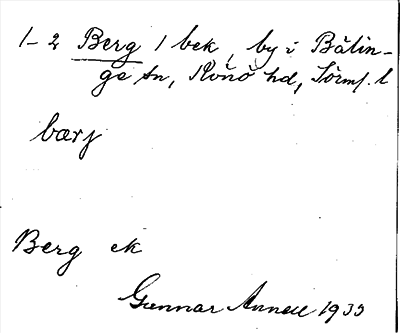 1-2 Berg 1 bek, by i Bälin-
ge sn, Rönö hd, Sörml. l
bærj
Berg ek
Gunnar Annell 1935